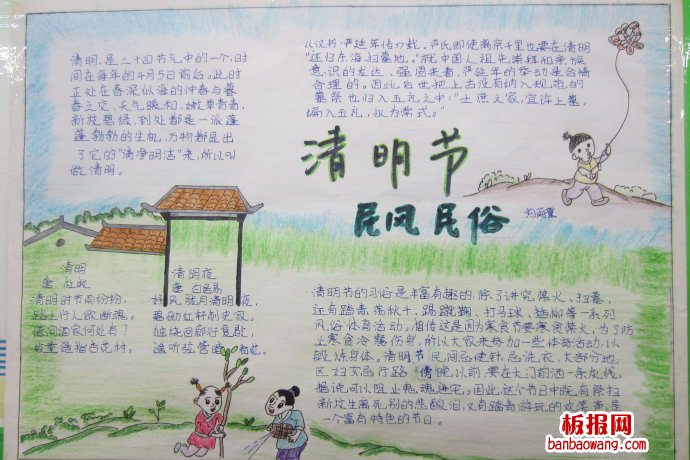 清明,是二十四节气中的一个,时
间在每年的4月5日前后,此时
正处在春深似海的仲春与暮
春之交,天气暖和,嫩草青青,
新枝碧绿,到处都是一派
蓬勃勃的生机,万物都显出
了它的“清净明洁”来,所以叫
做清明。
从汉书·严延年传》载,严氏即使离京千里也要在清明
“还归东海扫墓地。”就中国人祖先崇拜和亲族
意识的发达、强固来看,严延年的举动是合情
合理的。因此后世把上古没有纳入规范的
墓祭也归入五礼之中:“士庶之家,宜许上墓,
编入五礼,永为常式。”
清明节
民风民俗
清明
唐 杜牧
清明时节雨纷纷,
路上行人欲断魂。
借问酒家何处有?
牧童遥指杏花村。
清明夜
唐 白居易
好风胧月清明夜,
碧砌红轩刺史家。
独绕回廊行复歇,
遥听弦管暗看花。
清明节的习俗是丰富有趣的,除了讲究禁火、扫墓,
还有踏青、荡秋千、踢蹴鞠、打马球、插柳等一系列
风俗体育活动。相传这是因为寒食节要寒食禁火,为了防
止寒食冷餐伤身,所以大家来参加一些体育活动,以
锻炼身体。清明节,民间忌使针,忌洗衣,大部分地
区妇女忌行路。傍晚以前,要在大门前洒一条灰线,
据说可以阻止鬼魂进宅。因此,这个节日中既有祭扫
新坟生离死别的悲酸泪,又有踏青游玩的欢笑声,是
一个富有特色的节日。
板报网
banbaowang.com